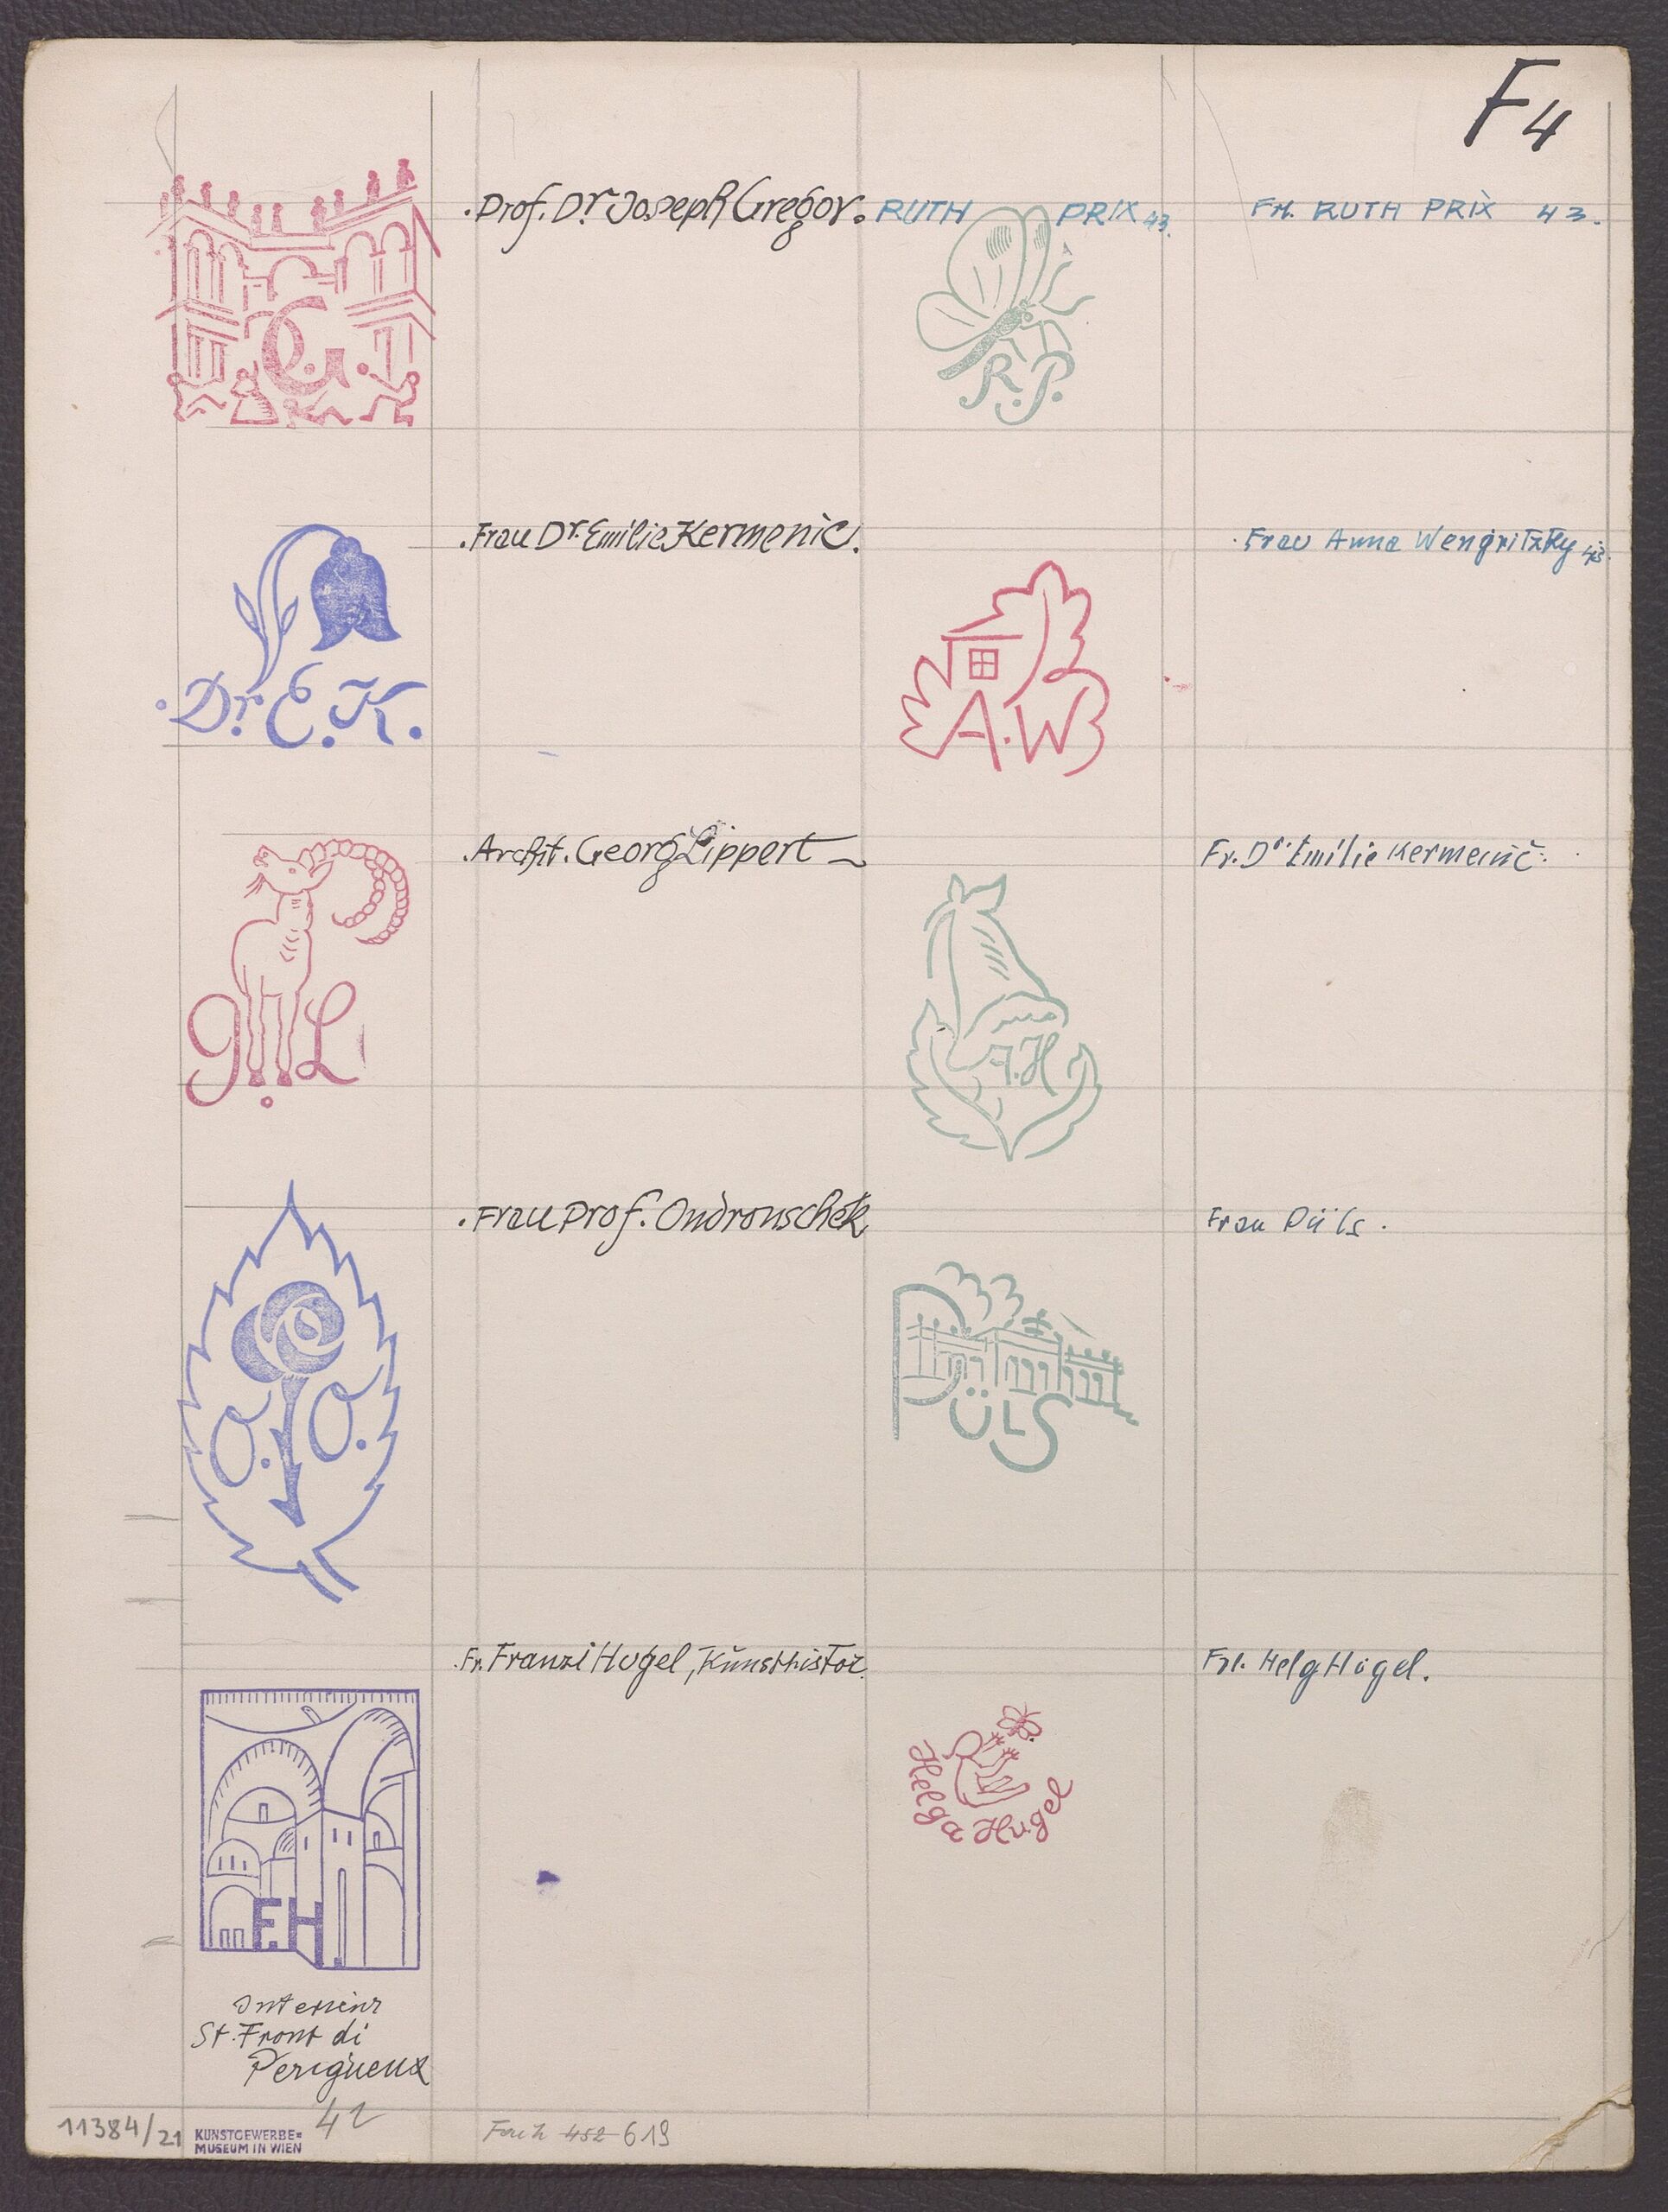 F4
.Prof. Dr. Joseph Gregor.
RUTH PRIX 43.
Frl. RUTH PRIX 43.
G.
R.P.
.Frau Dr. Emilie Kermenic.
Frau Anna Wengritzky 43.
.Dr. E.K.
A.W
.Archit. Georg Lippert
Fr. Dr. Emilie Kermenič.
G.L
A.H
.Frau Prof. Ondrouschek
Frau Püls.
O.O.
PÜLS
Fr. Franzi Hugel, Kunsthistor.
Frl. Helg Hugel.
F.H.
Helga Hugel
Interieur
St. Front di
Perigueux
42
11384/21
KUNSTGEWERBE=
MUSEUM IN WIEN
452 619